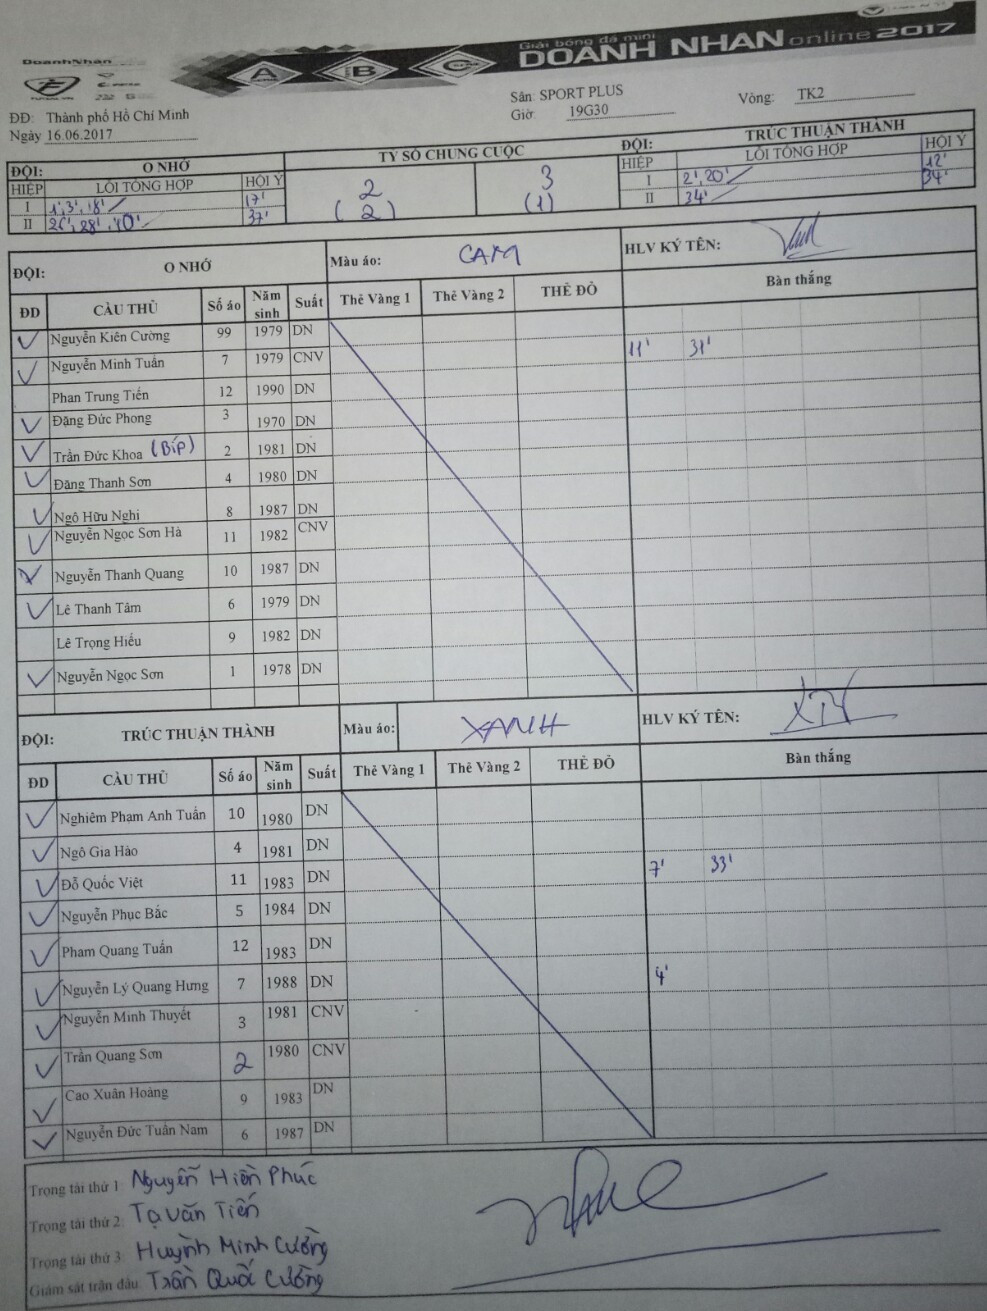 Giải bóng đá mini
DOANH NHAN online 2017
DoanhNhân
A B C
ĐĐ: Thành phố Hồ Chí Minh
Sân: SPORT PLUS
Vòng: TK2
Ngày 16.06.2017
Giờ: 19G30
ĐỘI: O NHỚ
TỶ SỐ CHUNG CUỘC
ĐỘI: TRÚC THUẬN THÀNH
HIỆP LỖI TỔNG HỢP HỘI Ý
2 3
HIỆP LỖI TỔNG HỢP HỘI Ý
I 1', 3', 18' 17'
(2) (1)
I 2', 20' 12'
II 26', 28', 40' 37'
II 34' 34'
ĐỘI: O NHỚ Màu áo: CAM HLV KÝ TÊN:
ĐD CẦU THỦ Số áo Năm sinh Suất Thẻ Vàng 1 Thẻ Vàng 2 THẺ ĐỎ Bàn thắng
Nguyễn Kiên Cường 99 1979 DN
Nguyễn Minh Tuấn 7 1979 CNV 11' 31'
Phan Trung Tiến 12 1990 DN
Đặng Đức Phong 3 1970 DN
Trần Đức Khoa (BíP) 2 1981 DN
Đặng Thanh Sơn 4 1980 DN
Ngô Hữu Nghị 8 1987 DN
Nguyễn Ngọc Sơn Hà 11 1982 CNV
Nguyễn Thanh Quang 10 1987 DN
Lê Thanh Tâm 6 1979 DN
Lê Trọng Hiếu 9 1982 DN
Nguyễn Ngọc Sơn 1 1978 DN
ĐỘI: TRÚC THUẬN THÀNH Màu áo: XANH HLV KÝ TÊN:
ĐD CẦU THỦ Số áo Năm sinh Suất Thẻ Vàng 1 Thẻ Vàng 2 THẺ ĐỎ Bàn thắng
Nghiêm Phạm Anh Tuấn 10 1980 DN
Ngô Gia Hào 4 1981 DN
Đỗ Quốc Việt 11 1983 DN 7' 33'
Nguyễn Phục Bắc 5 1984 DN
Phạm Quang Tuấn 12 1983 DN
Nguyễn Lý Quang Hưng 7 1988 DN 4'
Nguyễn Minh Thuyết 3 1981 CNV
Trần Quang Sơn 2 1980 CNV
Cao Xuân Hoàng 9 1983 DN
Nguyễn Đức Tuấn Nam 6 1987 DN
Trọng tài thứ 1: Nguyễn Hiền Phúc
Trọng tài thứ 2: Tạ Văn Tiến
Trọng tài thứ 3: Huỳnh Minh Cường
Giám sát trận đấu: Trần Quốc Cường